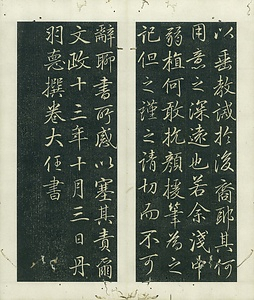 以垂教誡於後裔耶其何
用意之深遠也若余淺中
弱植何敢抗顏援筆為之
記但之謹之請切而不可
辭聊書所感以塞其責爾
文政十三年十月三日丹
羽惪撰卷大任書